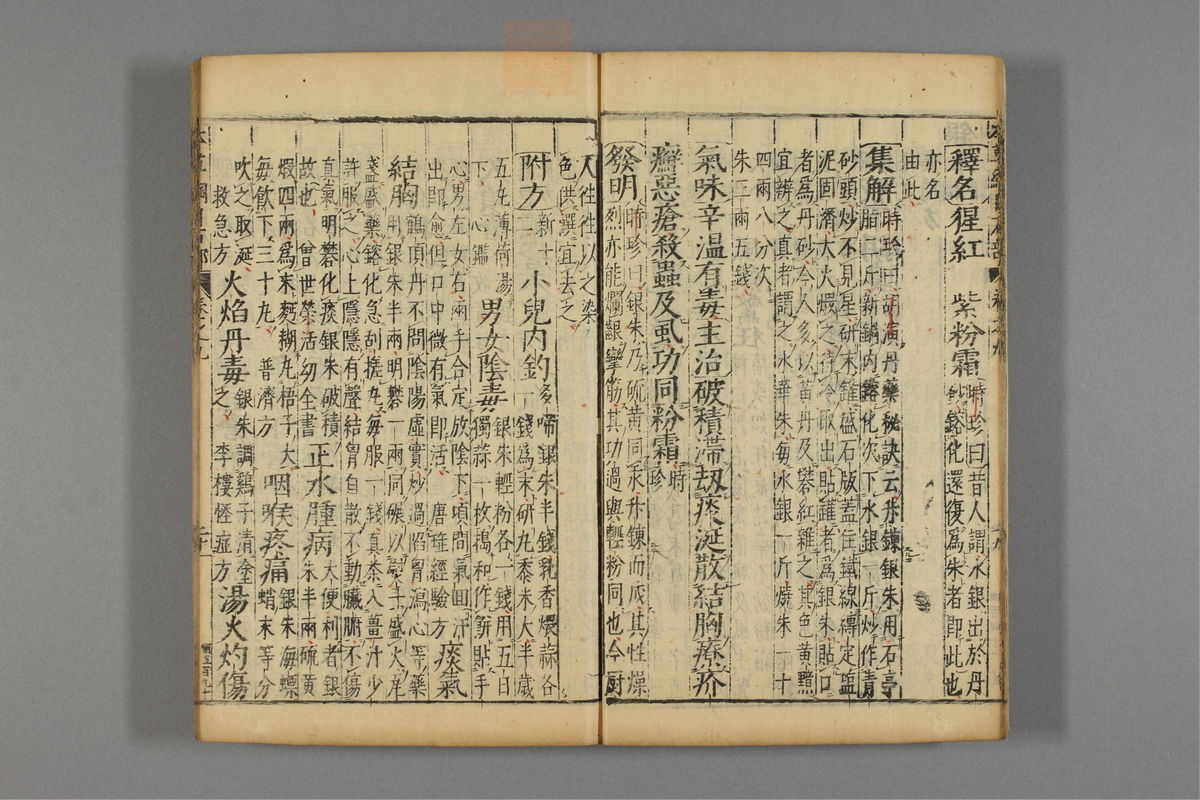 釋名猩紅 紫粉霜 時珍曰昔人謂水銀出於丹
砂鎔化還復爲朱者即此也
亦名
由此
集解 時珍曰胡演丹藥秘訣云升鍊銀朱用石亭
脂二斤新鍋內鎔化次下水銀一斤炒作青
砂頭炒不見星研末罐盛石版蓋住鐵線縛定鹽
泥固濟大火煅之待冷取出貼罐者爲銀朱貼口
者爲丹砂今人多以黃丹及礬紅雜之其色黃黯
宜辨之真者謂之水華朱每水銀一斤燒朱一十
四兩八分次
朱三兩五錢
氣味辛溫有毒主治破積滯刼痰涎散結胸療疥
癬惡瘡殺蟲及虱功同粉霜 時珍
發明 時珍曰銀朱乃硫黃同汞升鍊而成其性燥
烈亦能爛齦攣筋其功過與輕粉同也今廚
人往往以之染
色供饌宜去之
附方 新十二 小兒內釣多啼銀朱半錢乳香煨蒜各
一錢爲末研丸黍米大半歲
五丸薄荷湯
下 心鑑 男女陰毒 銀朱輕粉各一錢用五日
獨蒜一枚搗和作餅貼手
心男左女右兩手合定放陰下頃間氣回汗
出即愈但口中微有氣即活 唐瑤經驗方 痰氣
結胸 鶴頂丹不問陰陽虛實炒過陷胸瀉心等藥
用銀朱半兩明礬一兩同碾以熨斗盛火瓦
盞盛藥鎔化急刮搓丸每服一錢真茶入薑汁少
許服之心上隱隱有聲結胸自散不動臟腑不傷
真氣明礬化痰銀朱破積
故也 曾世榮活幼全書 正水腫病 大便利者銀
朱半兩硫黃
煅四兩爲末麪糊丸梧子大
每飲下三十丸 普濟方 咽喉疼痛 銀朱海螵
蛸末等分
吹之取涎
救急方 火焰丹毒 銀朱調雞子清塗
之 李樓怪症方 湯火灼傷